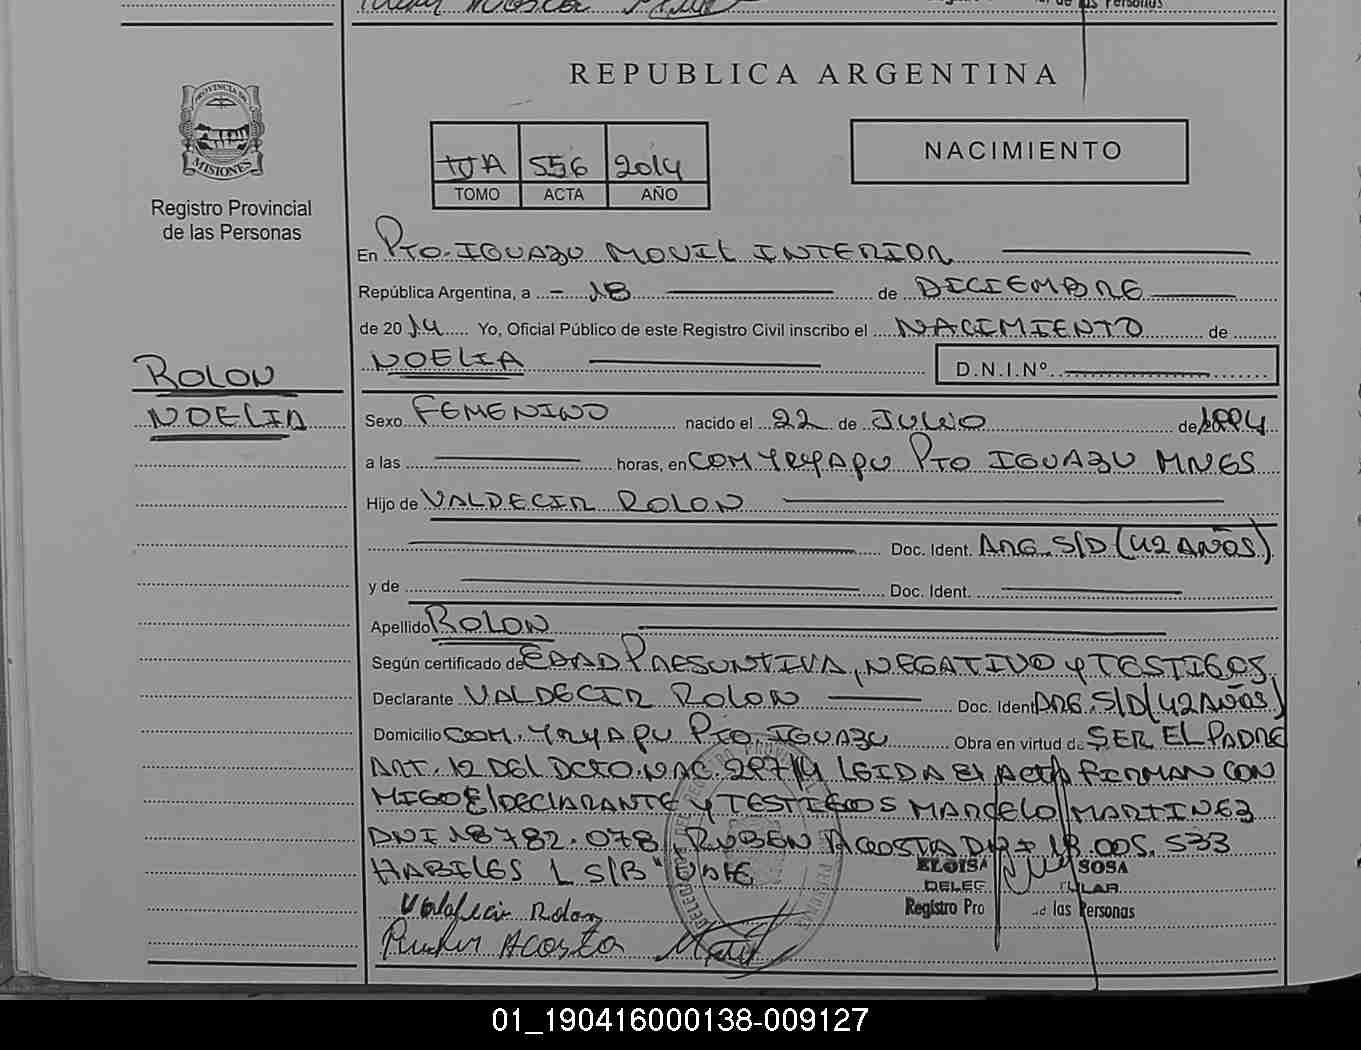 REPUBLICA ARGENTINA
PROVINCIA DE
MISIONES
Registro Provincial
de las Personas
556 2014
TOMO ACTA AÑO
NACIMIENTO
En Pto. IGUAZU MOVIL INTERIOR
República Argentina, a - 18 de DICIEMBRE
de 2014 Yo, Oficial Público de este Registro Civil inscribo el NACIMIENTO de
NOELIA D.N.I.Nº
ROLON
NOELIA
Sexo FEMENINO nacido el 22 de JULIO de 1994
a las horas, en COM YRYAPU Pto IGUAZU MNES
Hijo de VALDECIR ROLON
Doc. Ident. ARG. S/D (42 AÑOS)
y de Doc. Ident.
Apellido ROLON
Según certificado de EDAD PRESUNTIVA, NEGATIVO y TESTIGOS
Declarante VALDECIR ROLON Doc. Ident ARG. S/D (42 AÑOS)
Domicilio COM. YRYAPU Pto IGUAZU Obra en virtud de SER EL PADRE
ART. 12 DEL DCTO. NAC. 297/14 LEIDA EL ACTA FIRMAN CON
MIGO El DECLARANTE y TESTIGOS MARCELO MARTINEZ
DNI 18782.078, RUBEN ACOSTA 18.005.533
HABILES L S/B "VALE
ELOISA SOSA
DELEG TULAR
Registro Pro de las Personas
Valdecir Rolon
Ruben Acosta
01_190416000138-009127